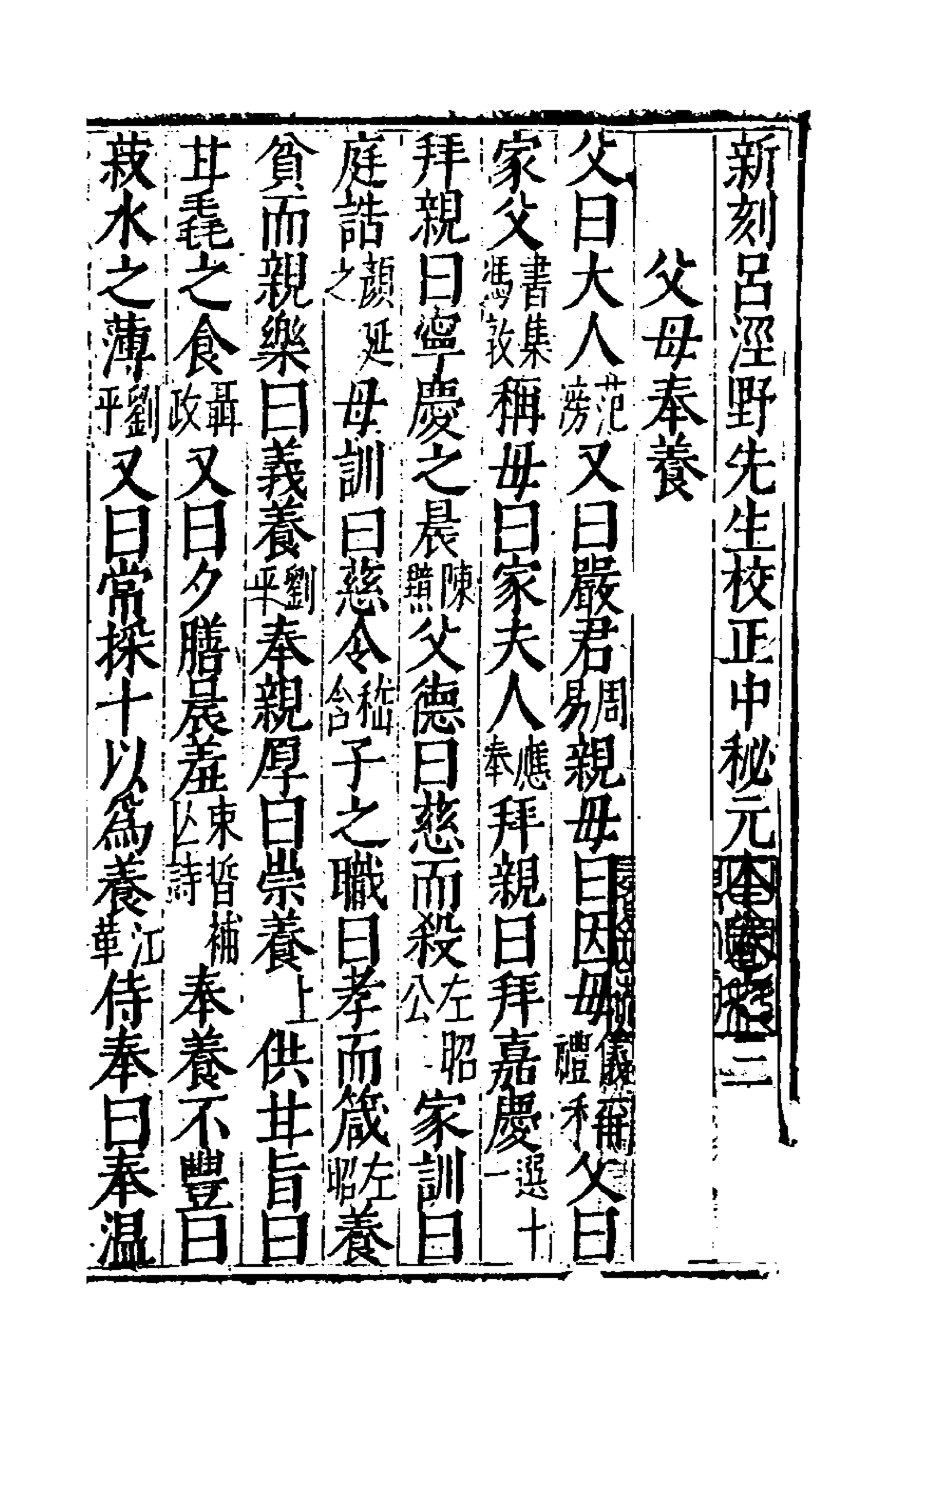 新刻呂涇野先生校正中秘元本卷之三
父母奉養
父曰大人范滂又曰嚴君周易親母曰因母儀禮稱父曰
家父書集馮敦稱母曰家夫人應奉拜親曰拜嘉慶選十一
拜親曰寧慶之晨陳照父德曰慈而殺左昭公家訓曰
庭誥顏延之母訓曰慈令嵇含子之職曰孝而箴左昭養
貧而親樂曰義養劉平奉親厚曰崇養上供甘旨曰
甘毳之食聶政又曰夕膳晨羞束晳補亡詩奉養不豐曰
菽水之薄劉平又曰常採十以為養江革侍奉曰奉溫